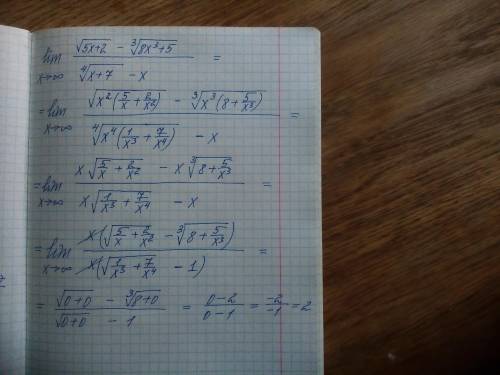 lim x→∞ (√(5x+2) − ∛(8x³+5)) / (∜(x+7) − x) =
= lim x→∞ (√(x²(5/x + 2/x²)) − ∛(x³(8 + 5/x³))) / (∜(x⁴(1/x³ + 7/x⁴)) − x) =
= lim x→∞ (x√(5/x + 2/x²) − x∛(8 + 5/x³)) / (x√(1/x³ + 7/x⁴) − x) =
= lim x→∞ x(√(5/x + 2/x²) − ∛(8 + 5/x³)) / x(√(1/x³ + 7/x⁴) − 1) =
= (√(0+0) − ∛(8+0)) / (√(0+0) − 1) = (0−2)/(0−1) = −2/−1 = 2